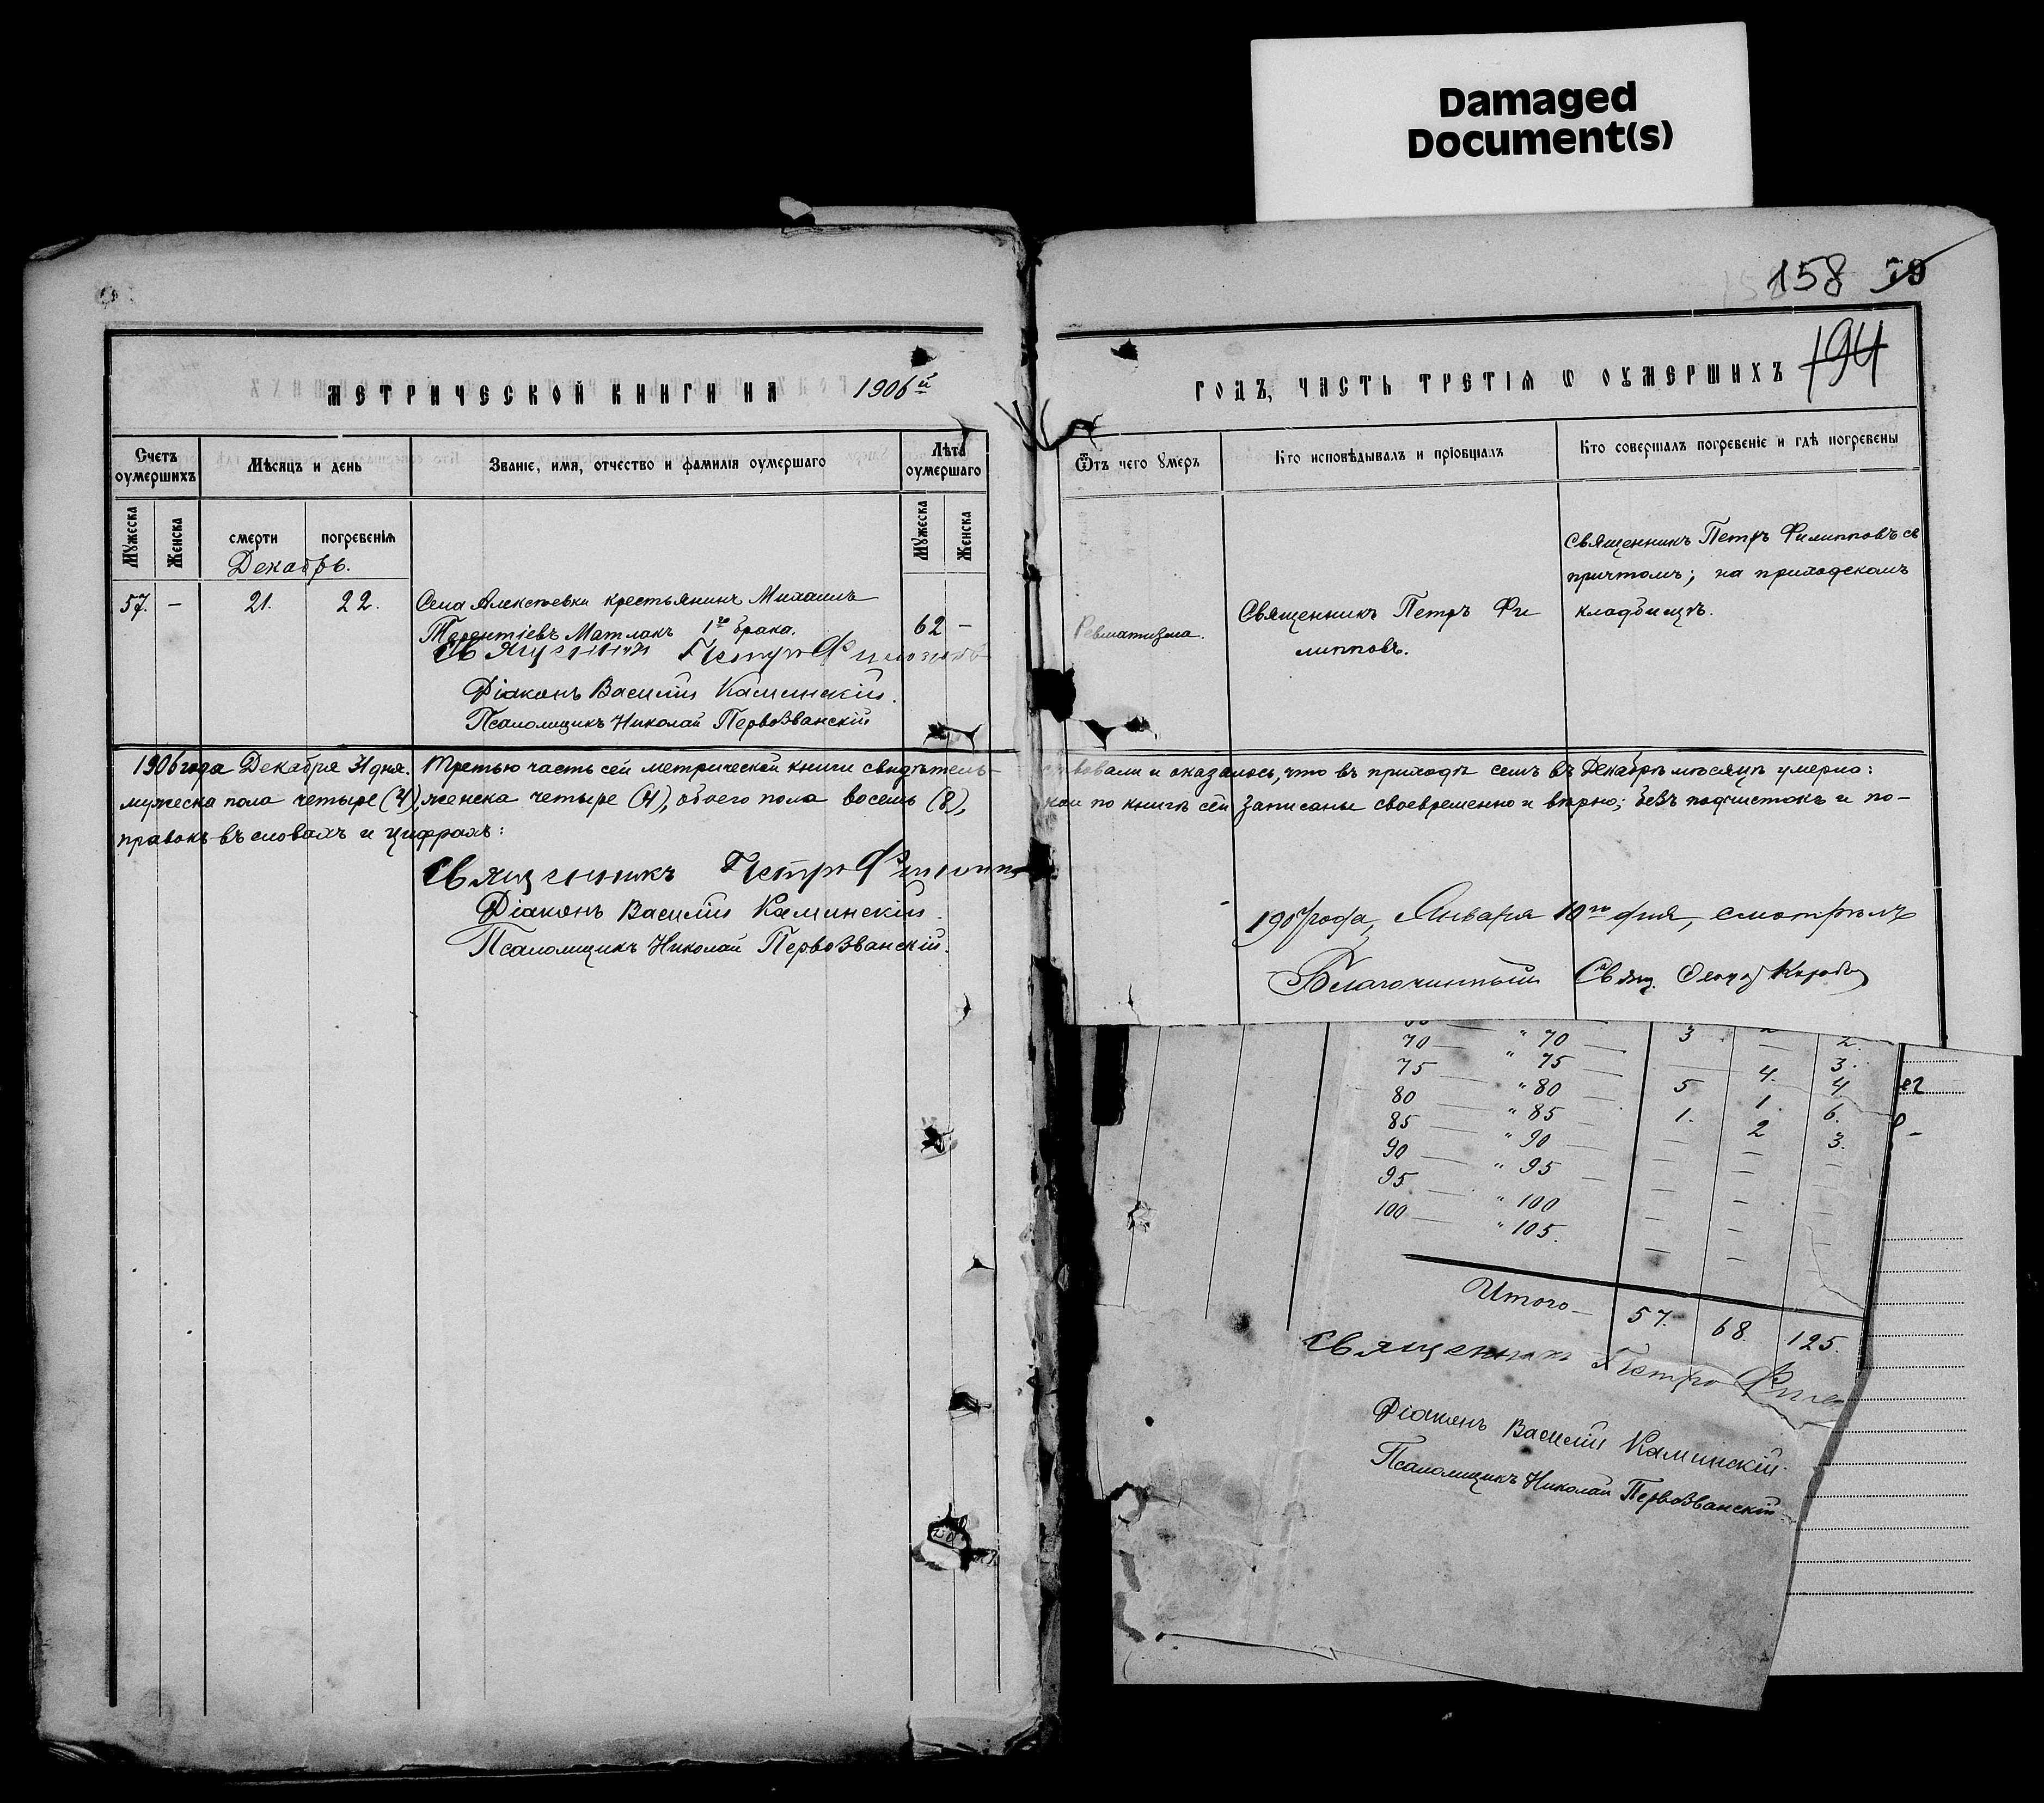 Damaged
Document(s)
158 79
МЕТРИЧЕСКОЙ КНИГИ НА 1906й
ГОДЪ, ЧАСТЬ ТРЕТІѦ Ѡ ОУМЕРШИХЪ 194
Счетъ оумершихъ
Мѣсяцъ и день
Званіе, имя, отчество и фамилія оумершаго
Лѣта оумершаго
Ѿтъ чего ꙋмеръ
Кто исповѣдывалъ и пріобщалъ
Кто совершалъ погребеніе и гдѣ погребены
Мꙋжеска
Женска
смерти
погребенїѧ
Мꙋжеска
Женска
Декабрь.
57. — 21. 22.
Села Алексѣевки крестьянинъ Михаилъ
Терентіевъ Матлакъ 1го брака.
62 —
Ревматизма.
Священникъ Петръ Фи
липповъ.
Священникъ Петръ Филипповъ съ
причтомъ; на приходскомъ
кладбищѣ.
Священникъ Петръ Филипповъ
Діаконъ Василій Каминскій.
Псаломщикъ Николай Первозванскій
1906 года Декабря 31 дня. Третью часть сей метрической книги свидѣтель-
ствовали и оказалось, что въ приходѣ семъ въ Декабрѣ мѣсяцѣ умерло:
мужеска пола четыре (4), женска четыре (4), обоего пола восемь (8),
кои по книгѣ сей записаны своевременно и вѣрно; безъ подчистокъ и по-
правокъ въ словахъ и цифрахъ:
Священникъ Петръ Филиппо
Діаконъ Василій Каминскій.
Псаломщикъ Николай Первозванскій.
1907 года, Января 10го дня, смотрѣлъ
Благочинный Свящ.
70 — " 70 — 3 — 2.
75 — " 75 — — 4. 3.
80 — " 80 — 5 1. 4
85 — " 85 — 1. 2 6.
90 — " 90 — — — 3.
95 — " 95 — — — —
100 — " 100 — — —
" 105. — —
Итого — 57. 68. 125.
Священникъ Петръ Фили
Діаконъ Василій Каминскій.
Псаломщикъ Николай Первозванскій.